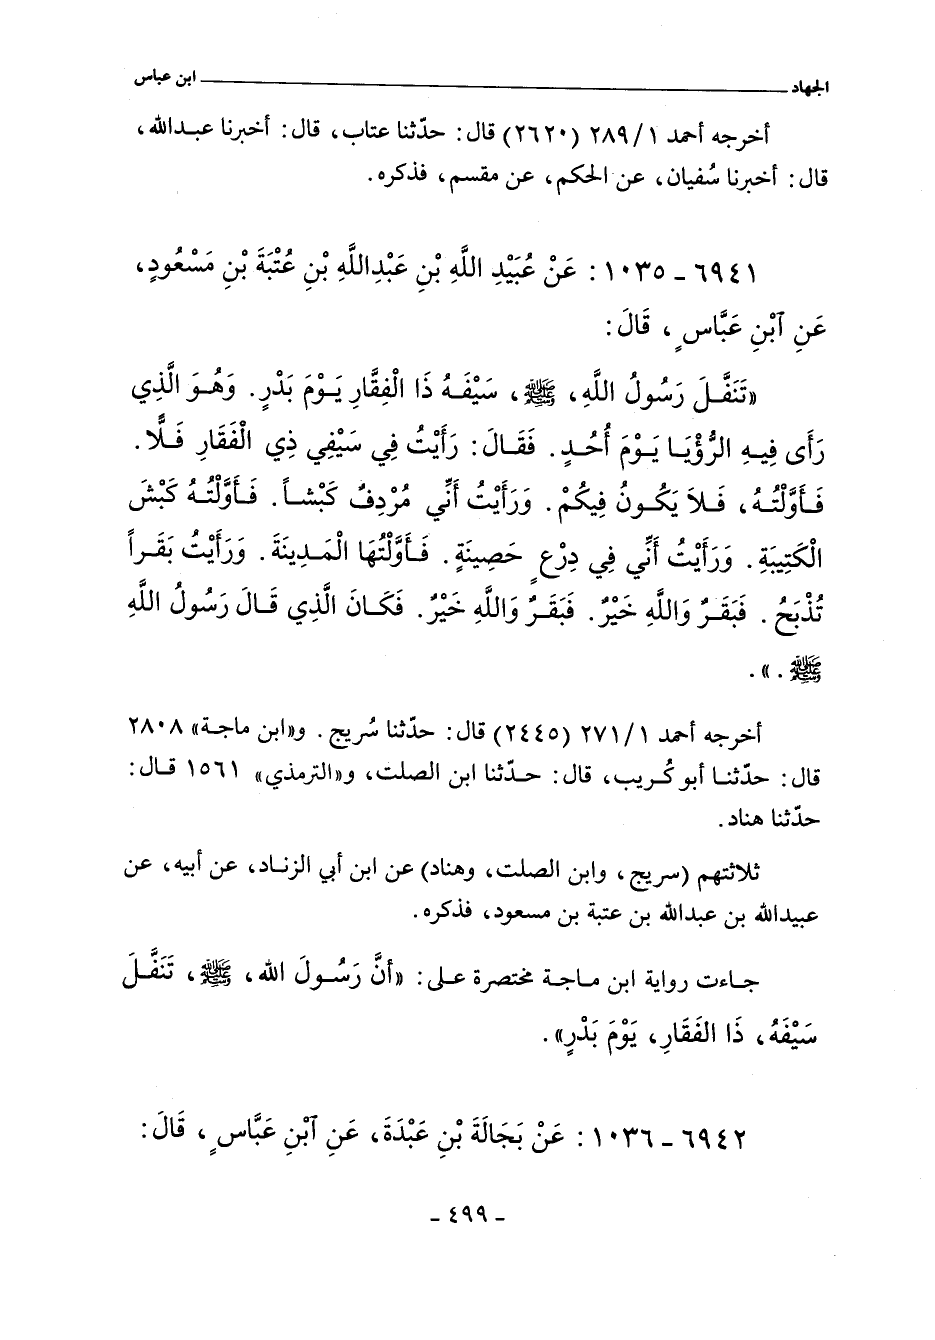 الجهاد ــــــــــــــــــــ ابن عباس
أخرجه أحمد ١/ ٢٨٩ (٢٦٢٠) قال: حدّثنا عتاب، قال: أخبرنا عبدالله،
قال: أخبرنا سُفيان، عن الحكم، عن مقسم، فذكره.
٦٩٤١ - ١٠٣٥: عَنْ عُبَيْدِ اللَّهِ بْنِ عَبْدِاللَّهِ بْنِ عُتْبَةَ بْنِ مَسْعُودٍ،
عَنِ آبْنِ عَبَّاسٍ، قَالَ:
«تَنَفَّلَ رَسُولُ اللَّهِ، ﷺ، سَيْفَهُ ذَا الْفِقَّارِ يَوْمَ بَدْرٍ. وَهُوَ الَّذِي
رَأَى فِيهِ الرُّؤْيَا يَوْمَ أُحُدٍ. فَقَالَ: رَأَيْتُ فِي سَيْفِي ذِي الْفَقَارِ فَلًّا.
فَأَوَّلْتُهُ، فَلاَ يَكُونُ فِيكُمْ. وَرَأَيْتُ أَنِّي مُرْدِفٌ كَبْشاً. فَأَوَّلْتُهُ كَبْشَ
الْكَتِيبَةِ. وَرَأَيْتُ أَنِّي فِي دِرْعٍ حَصِينَةٍ. فَأَوَّلْتُهَا الْمَدِينَةَ. وَرَأَيْتُ بَقَراً
تُذْبَحُ. فَبَقَرٌ وَاللَّهِ خَيْرٌ. فَبَقَرٌ وَاللَّهِ خَيْرٌ. فَكَانَ الَّذِي قَالَ رَسُولُ اللَّهِ
ﷺ.».
أخرجه أحمد ١/ ٢٧١ (٢٤٤٥) قال: حدّثنا سُريج. و«ابن ماجة» ٢٨٠٨
قال: حدّثنا أبو كُريب، قال: حدّثنا ابن الصلت، و«الترمذي» ١٥٦١ قال:
حدّثنا هناد.
ثلاثتهم (سريج، وابن الصلت، وهناد) عن ابن أبي الزناد، عن أبيه، عن
عبيدالله بن عبدالله بن عتبة بن مسعود، فذكره.
جاءت رواية ابن ماجة مختصرة على: «أنَّ رَسُولَ الله، ﷺ، تَنَفَّلَ
سَيْفَهُ، ذَا الفَقَارِ، يَوْمَ بَدْرٍ».
٦٩٤٢ - ١٠٣٦: عَنْ بَجَالَةَ بْنِ عَبْدَةَ، عَنِ آبْنِ عَبَّاسٍ، قَالَ:
- ٤٩٩ -